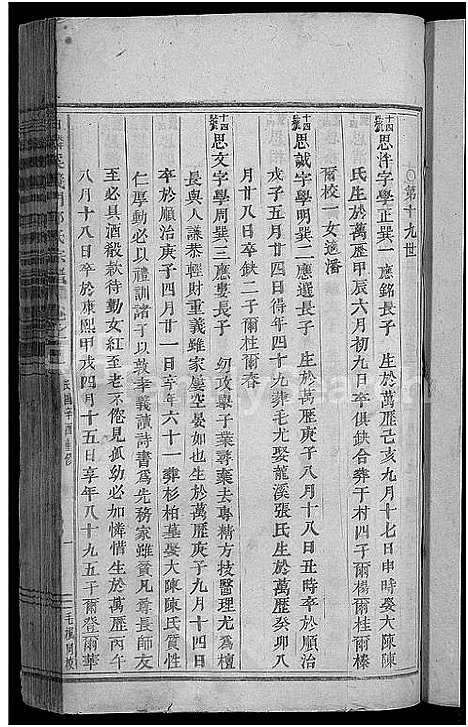 ○第十九世
十四號思泮字學正巽一應銘長子 生於萬歷己亥九月十七日申時娶大陳陳
氏生於萬歷甲辰六月初九日卒俱缺合葬于村四子爾楊爾桂爾榛
爾校一女適潘
十四號思誠字學明巽二應選長子 生於萬歷庚子八月十八日丑時卒於順治
戊子五月廿四日得年四十九葬毛尤娶龍溪張氏生於萬歷癸卯八
月廿八日卒缺二子爾桂爾春
十四號思文字學周巽三應婁長子 幼攻舉子業尋棄去專精方技醫理尤爲檀
長與人謙恭輕財重義雖家屢空晏如也生於萬歷庚子九月十四日
卒於順治庚子四月廿一日享年六十一葬杉柏墓娶大陳陳氏質性
仁厚動必以禮訓諸子以敦孝義讀詩書爲先務家雖貧凡尊長師友
至必具酒殽款待勤女紅至老不倦見孤幼必加憐惜生於萬歷丙午
八月十八日卒於康熙甲戌四月十五日享年八十九五子爾登爾華